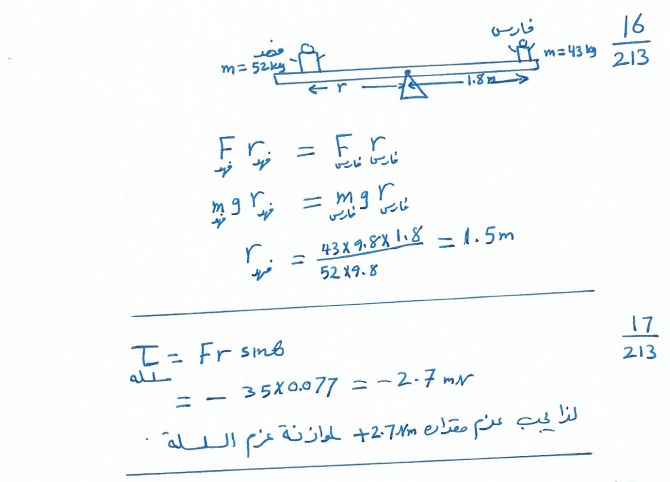 16
213
فارس
m = 43 kg
فهد
m = 52 kg
r
1.8 m
F فهد r فهد = F فارس r فارس
m فهد g r فهد = m فارس g r فارس
r فهد = 43 x 9.8 x 1.8 / 52 x 9.8 = 1.5 m
17
213
τ سلسلة = F r sin θ
= - 35 x 0.077 = - 2.7 mN
لذا يجب عزم مقداره +2.7 Nm لموازنة عزم السلسلة .